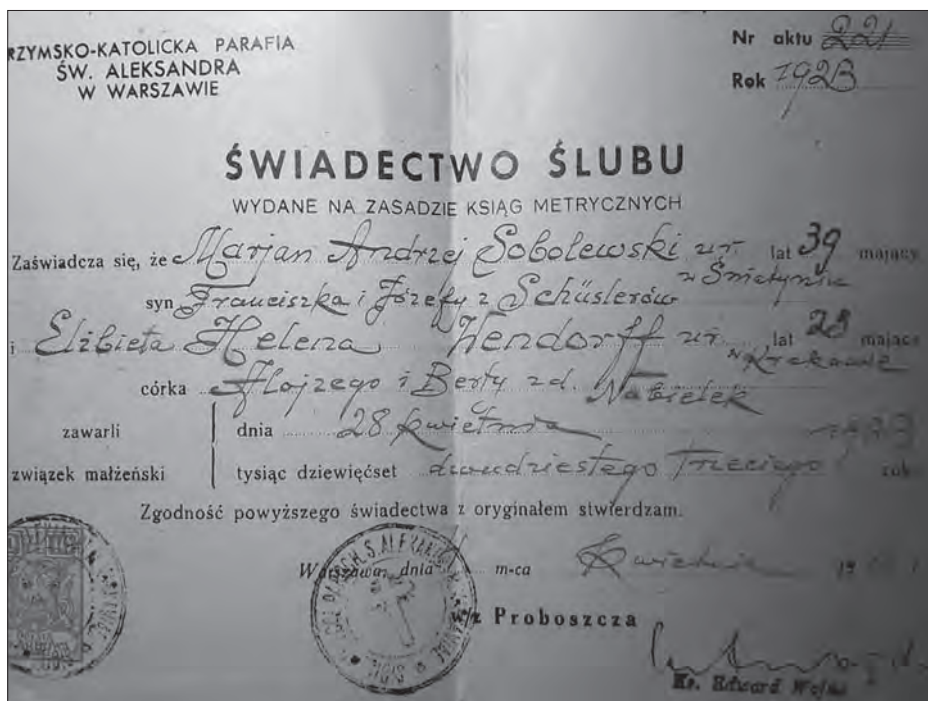 RZYMSKO-KATOLICKA PARAFIA
ŚW. ALEKSANDRA
W WARSZAWIE
Nr aktu 221
Rok 1923
ŚWIADECTWO ŚLUBU
WYDANE NA ZASADZIE KSIĄG METRYCZNYCH
Zaświadcza się, że Marjan Andrzej Sobolewski ur. lat 39 mający
w Śniatynie
syn Franciszka i Józefy z Schüslerów
i Elżbieta Helena Zendorff ur. lat 23 mająca
w Krakowie
córka Alojzego i Berty z d. Nabielek
zawarli dnia 28 kwietnia 1923
związek małżeński tysiąc dziewięćset dwudziestego trzeciego roku
Zgodność powyższego świadectwa z oryginałem stwierdzam.
Warszawa, dnia m-ca Kwietnia 19
w/z Proboszcza
Ks. Edward